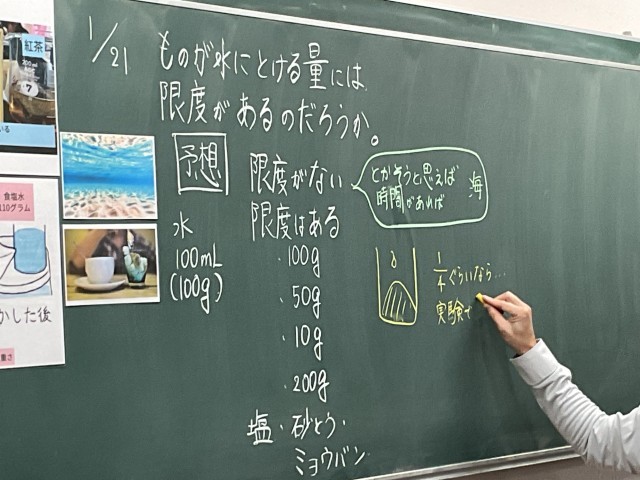 1/21
ものが水にとける量には
限度があるのだろうか。
予想
限度がない
とかそうと思えば
時間があれば
海
限度はある
水
100mL
(100g)
・100g
・50g
・10g
・200g
塩・砂とう・
ミョウバン
1/4ぐらいなら…
実験で
紅茶
7
いる
食塩水
110グラム
かした後
重さ